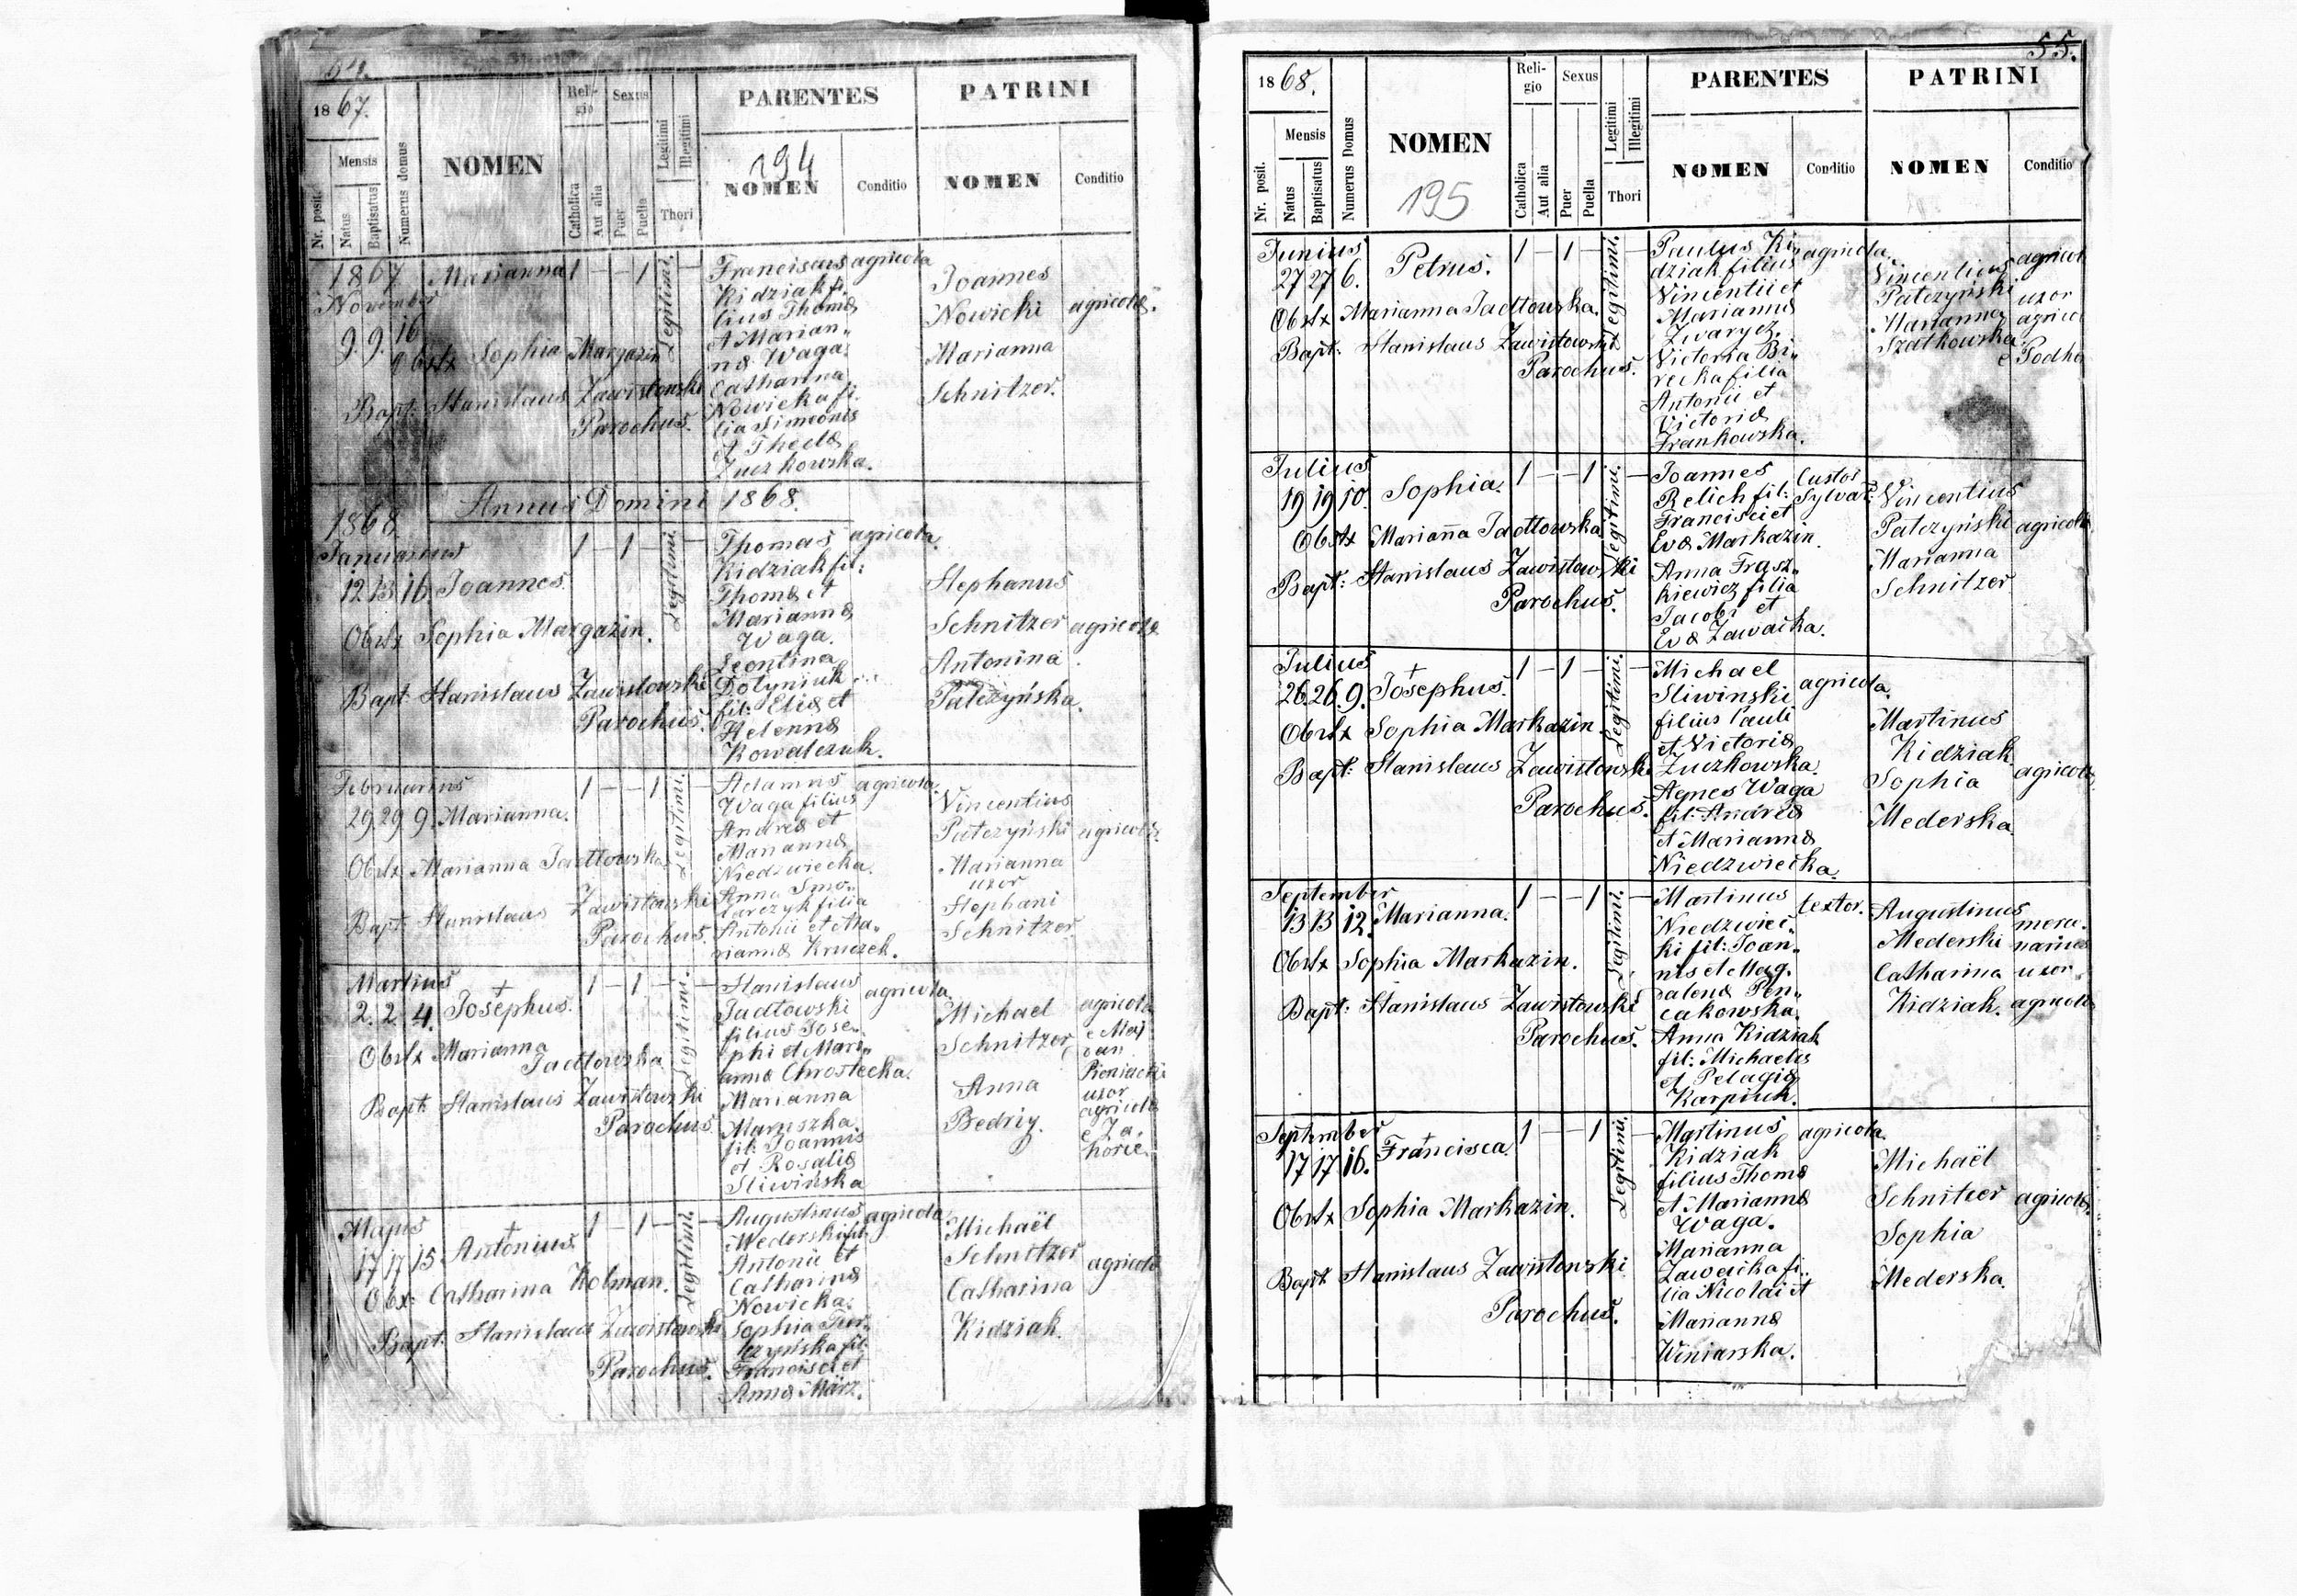 54.
1867.
Mensis
Nr. posit.
Natus
Baptisatus
Numerus domus
NOMEN
Religio
Catholica
Aut alia
Sexus
Puer
Puella
Legitimi
Illegitimi
Thori
PARENTES
194
NOMEN
Conditio
PATRINI
NOMEN
Conditio
1867
November
9. 9. 16
Marianna 1 — — 1 —
Legitimi.
Obstx Sophia Margazin
Bapt: Stanislaus Zawistowski
Parochus.
Franciscus agricola
Kidziak fi-
lius Thomæ
et Marian-
næ Waga.
Catharina
Nowicka fi-
lia Simeonis
et Theclæ
Zuczkowska.
Joannes
Nowicki agricolæ.
Marianna
Schnitzer.
Annus Domini 1868.
1868
Januarius
12. 13. 16. Joannes. 1 — 1 — —
Legitimi.
Obstx Sophia Margazin.
Bapt: Stanislaus Zawistowski
Parochus.
Thomas agricola.
Kidziak fil:
Thomæ et
Mariannæ
Waga.
Leontina
Dolyniuk
fil: Eliæ et
Helennæ
Kowalczuk.
Stephanus
Schnitzer agricolæ
Antonina
Patczyńska.
Februarius
29. 29. 9. Marianna. 1 — — 1 —
Legitimi.
Obstx Marianna Jadtowska
Bapt: Stanislaus Zawistowski
Parochus.
Adamus agricola.
Waga filius
Andreæ et
Mariannæ
Niedzwiecka.
Anna Smo-
larczyk filia
Antonii et Ma-
riannæ Kruczek.
Vincentius
Patczyński agricolæ.
Marianna
uxor
Stephani
Schnitzer
Martius
2. 2. 4. Josephus. 1 — 1 — —
Legitimi.
Obstx Marianna
Jadtowska
Bapt: Stanislaus Zawistowski
Parochus.
Stanislaus agricola.
Jadtowski
filius Jose-
phi et Mari-
annæ Chrostecka.
Marianna
Maruszka.
fil: Joannis
et Rosaliæ
Sliwińska
Michael agricola
Schnitzer e Maj
dan
Pieniacki
Anna uxor
Bedriy. agricolæ
e Ja-
horie.
Majus
17 17 15 Antonius. 1 — 1 — —
Legitimi.
Obx: Catharina Kolman.
Bapt: Stanislaus Zawistowski
Parochus.
Augustinus agricola
Mederski fil:
Antonii et
Catharinæ
Nowicka.
Francisci et
Annæ März.
Michaël
Schnitzer agricolæ
Catharina
Kidziak.
55.
1868.
Mensis
Nr. posit.
Natus
Baptisatus
Numerus Domus
NOMEN
195
Religio
Catholica
Aut alia
Sexus
Puer
Puella
Legitimi
Illegitimi
Thori
PARENTES
NOMEN
Conditio
PATRINI
NOMEN
Conditio
Junius
27 27 6. Petrus. 1 — 1 — —
Legitimi.
Obstx Marianna Jadtowska.
Bapt: Stanislaus Zawistowski
Parochus.
Paulus Ki- agricola.
dziak filius
Vincentii et
Mariannæ
Zwarycz.
Victoria Bi-
recka filia
Antonii et
Victoriæ
Frankowska.
Vincentius agricol
Patczyński
Marianna uxor
Szatkowska agricol
e Podho
Julius
19 19 10. Sophia. 1 — — 1 —
Legitimi.
Obstx Marianna Jadtowska
Bapt: Stanislaus Zawistowski
Parochus.
Joannes Custos
Relich fil: Sylvar:
Francisci et
Evæ Markazin.
Anna Frasz-
kiewicz filia
Jacobi et
Evæ Zawacka.
Vincentius
Patczyński agricolæ
Marianna
Schnitzer
Julius
26. 26. 9. Josephus. 1 — 1 — —
Legitimi.
Obstx Sophia Markazin
Bapt: Stanislaus Zawistowski
Parochus.
Michael agricola.
Sliwinski
filius Pauli
et Victoriæ
Zuczkowska.
Agnes Waga
fil: Andreæ
et Mariannæ
Niedzwiecka.
Martinus
Kidziak
Sophia agricolæ
Mederska
September
13 13 12. Marianna. 1 — — 1 —
Legitimi.
Obstx Sophia Markazin.
Bapt: Stanislaus Zawistowski
Parochus.
Martinus textor.
Niedzwiec-
ki fil: Joan-
nis et Mag-
dalenæ Pen-
cakowska.
Anna Kidziak
fil: Michaelis
et Pelagiæ
Karpiuk.
Augustinus merce-
Mederski narius
Catharina uxor
Kidziak. agricolæ
September
17 17 16. Francisca 1 — — 1 —
Legitimi.
Obstx Sophia Markazin.
Bapt: Stanislaus Zawistowski
Parochus.
Martinus agricola.
Kidziak
filius Thomæ
et Mariannæ
Waga.
Marianna
Zawacka fi-
lia Nicolai et
Mariannæ
Winiarska.
Michaël
Schnitzer agricolæ
Sophia
Mederska.